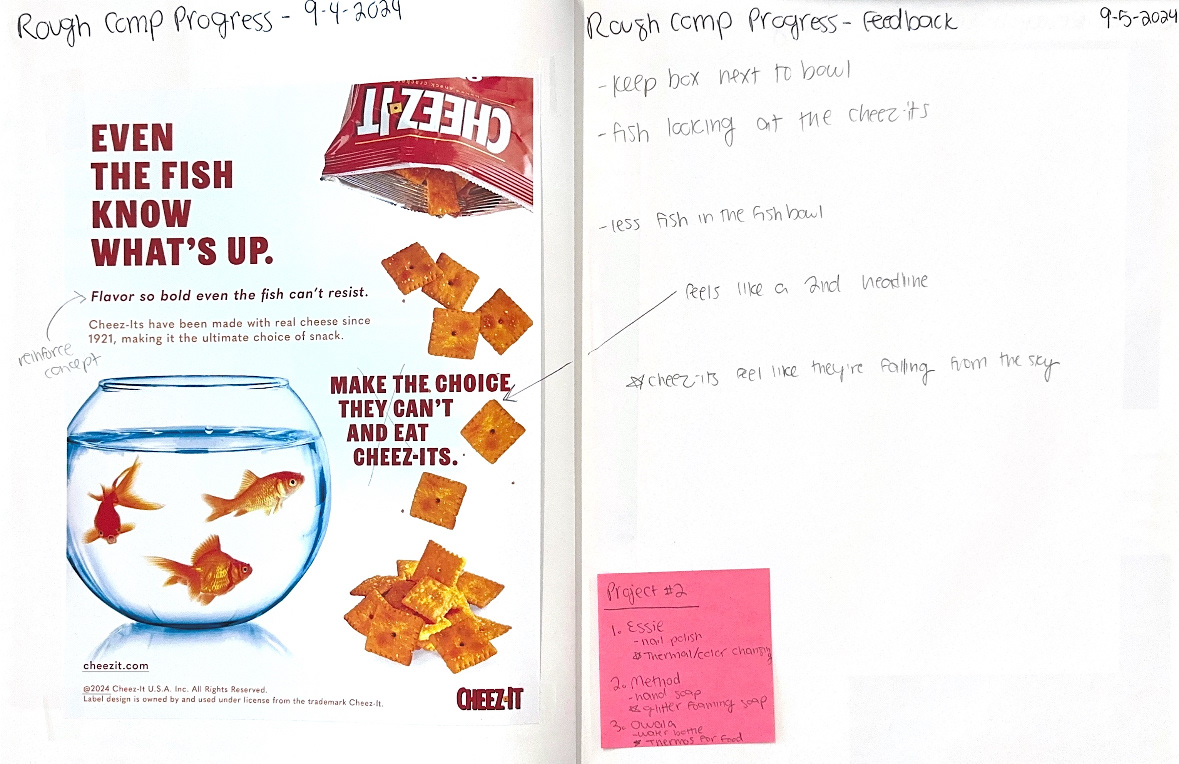 Rough Comp Progress - 9-4-2024
CHEEZ-IT
EVEN
THE FISH
KNOW
WHAT'S UP.
Flavor so bold even the fish can't resist.
Cheez-Its have been made with real cheese since
1921, making it the ultimate choice of snack.
reinforce
concept
MAKE THE CHOICE
THEY CAN'T
AND EAT
CHEEZ-ITS.
cheezit.com
@2024 Cheez-It U.S.A. Inc. All Rights Reserved.
Label design is owned by and used under license from the trademark Cheez-It.
CHEEZ-IT
Rough Comp Progress - Feedback 9-5-2024
- keep box next to bowl
- fish looking at the cheez-its
- less fish in the fishbowl
feels like a 2nd headline
cheez-its feel like they're falling from the sky
Project #2
1. Essie
- nail polish
Thermal/color changing
2. Method
- hand soap
glitter foaming soap
3. Owala
- water bottle
Thermos for food